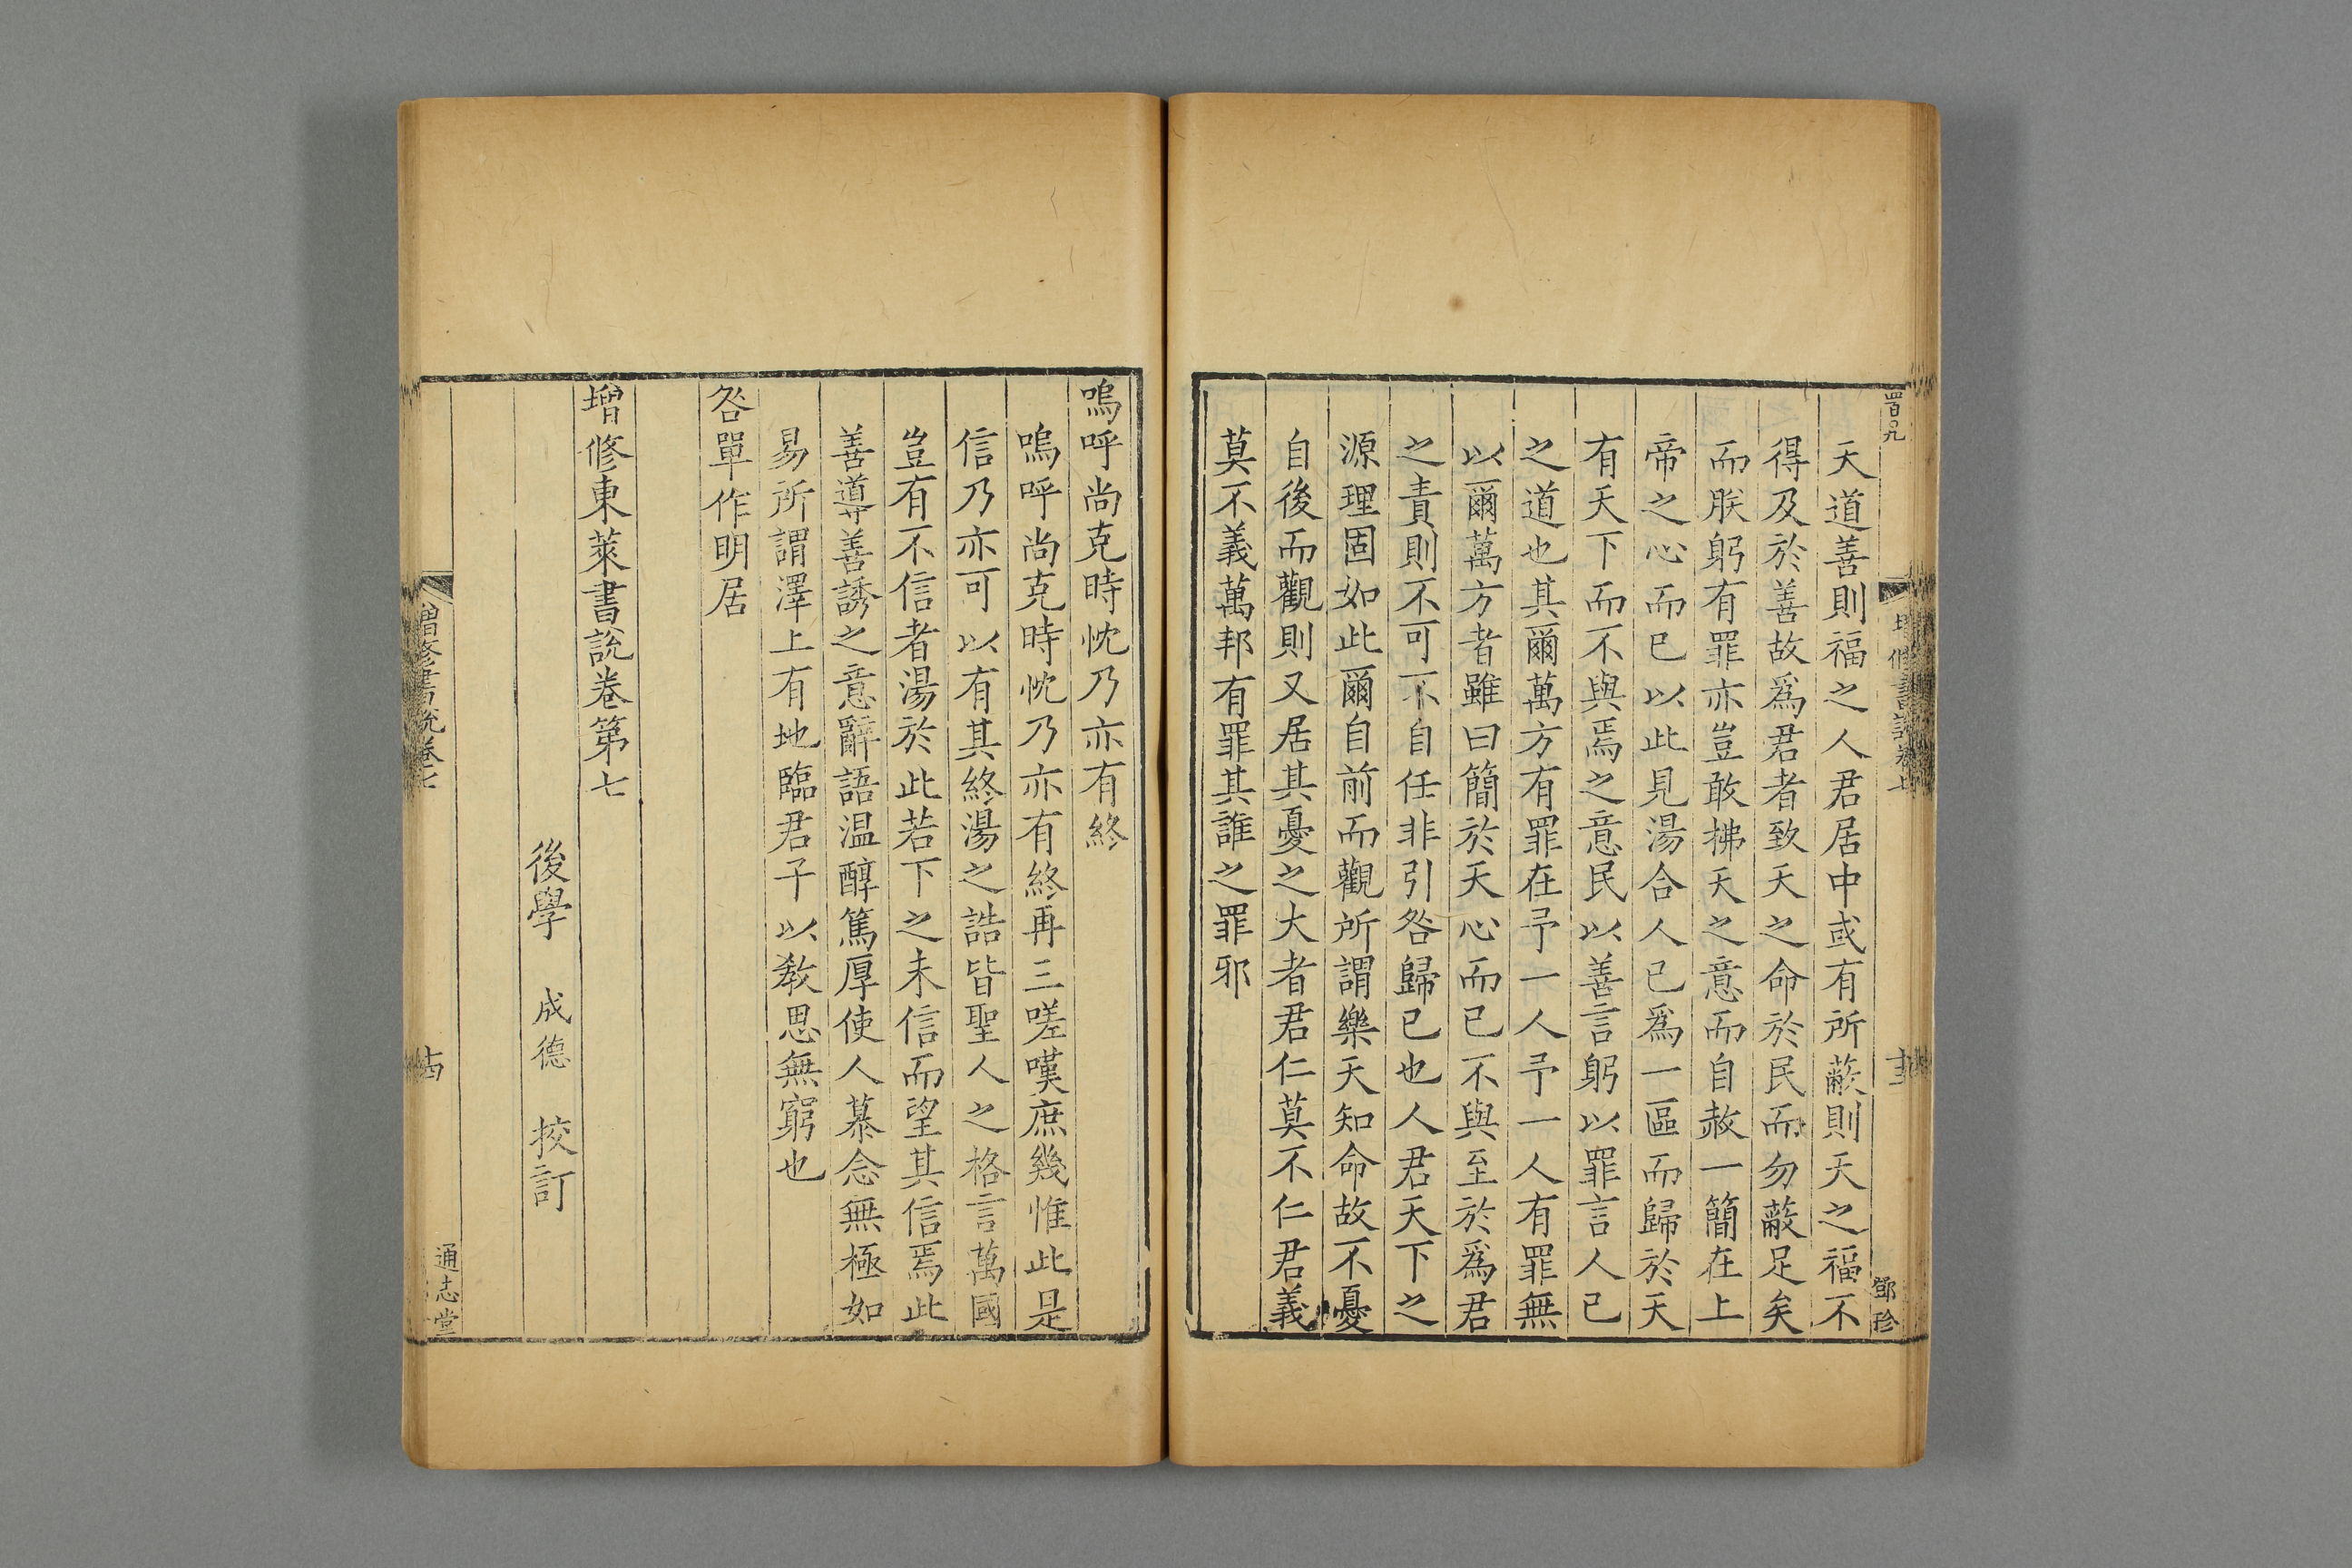 天道善則福之人君居中或有所蔽則天之福不
得及於善故爲君者致天之命於民而勿蔽足矣
而朕躬有罪亦豈敢拂天之意而自赦一簡在上
帝之心而已以此見湯合人已爲一區而歸於天
有天下而不與焉之意民以善言躬以罪言人已
之道也其爾萬方有罪在予一人予一人有罪無
以爾萬方者雖曰簡於天心而已不與至於爲君
之責則不可不自任非引咎歸已也人君天下之
源理固如此爾自前而觀所謂樂天知命故不憂
自後而觀則又居其憂之大者君仁莫不仁君義
莫不義萬邦有罪其誰之罪邪
鄧珍
嗚呼尚克時忱乃亦有終
嗚呼尚克時忱乃亦有終再三嗟嘆庶幾惟此是
信乃亦可以有其終湯之誥皆聖人之格言萬國
豈有不信者湯於此若下之未信而望其信焉此
善導善誘之意辭語温醇篤厚使人慕念無極如
易所謂澤上有地臨君子以敎思無窮也
咎單作明居
增修東萊書說卷第七
後學 成德 挍訂
增修書說卷七
通志堂